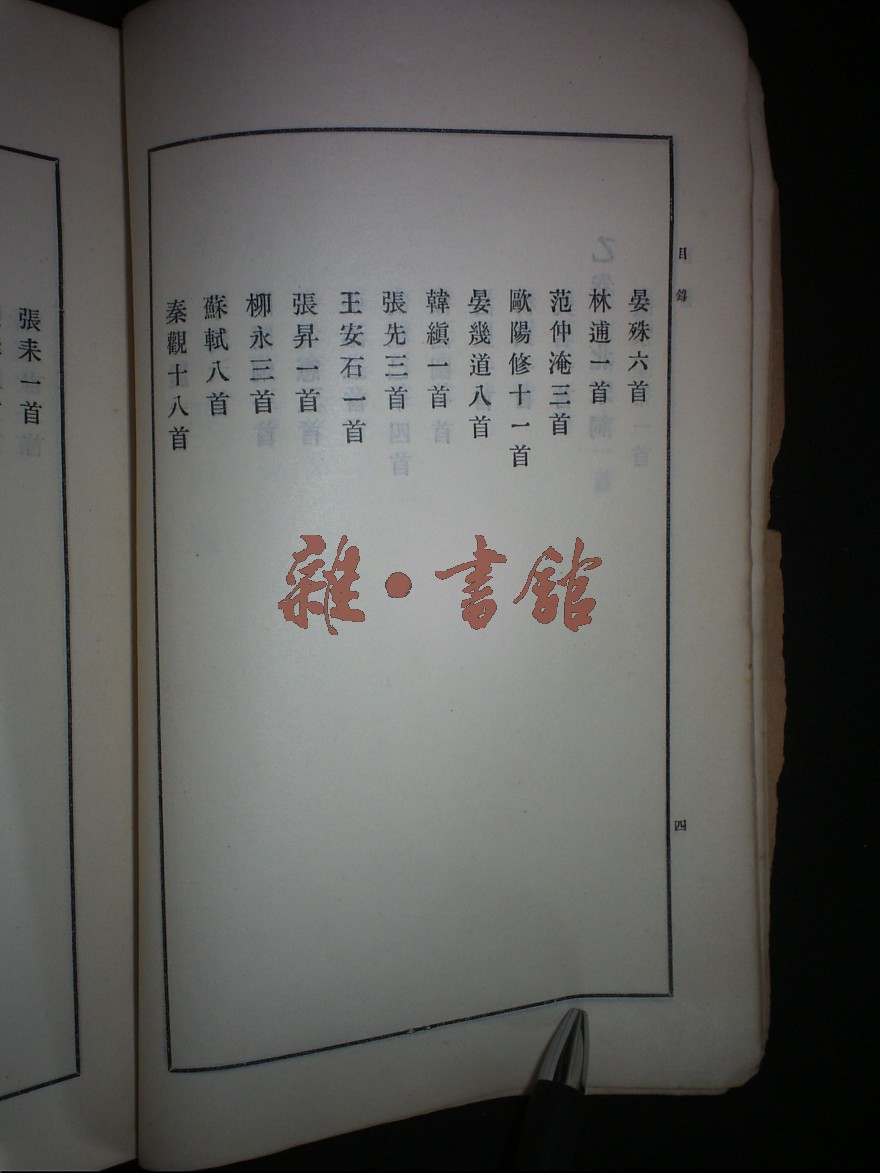 目錄
四
晏殊六首
林逋一首
范仲淹三首
歐陽修十一首
晏幾道八首
韓縝一首
張先三首
王安石一首
張昇一首
柳永三首
蘇軾八首
秦觀十八首
張耒一首
雜·書館